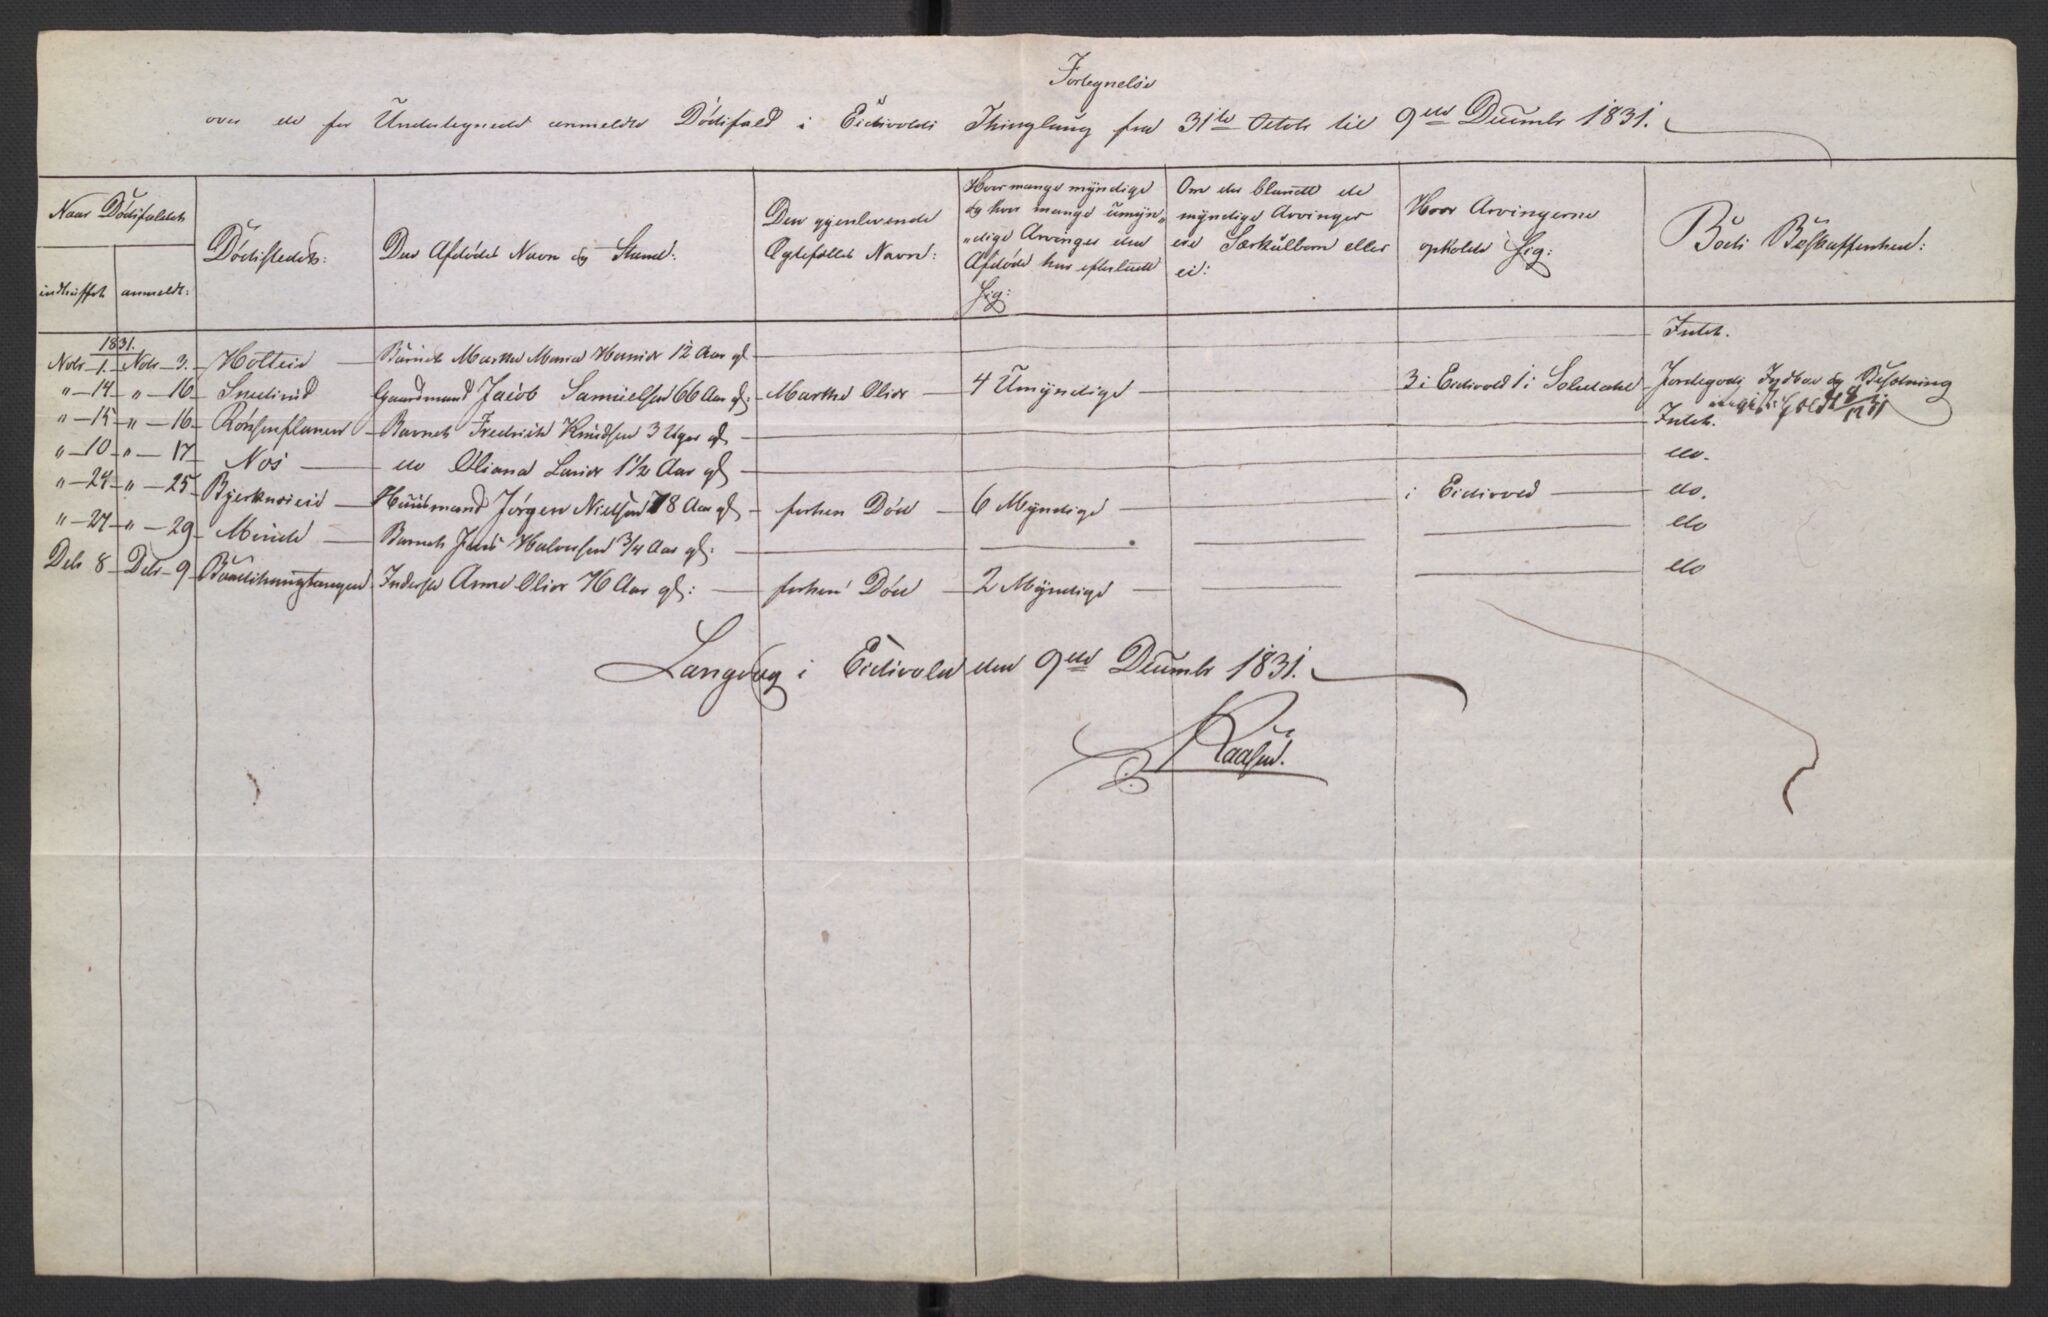 Fortegnelse
over de for Undertegnede anmeldte Dødsfald i Eidsvolds Thinglaug fra 31te Octob til 9de Decembr 1831.
Naar Dødsfaldet
indtruffet anmeldt:
Dødsstedet:
Den Afdødes Navn og Stand:
Den gjenlevende
Ægtefælles Navn:
Hvor mange myndige
og hvor mange umyn„
„dige Arvinger den
Afdøde har efterladt
sig:
Om der blandt de
myndige Arvinger
ere Særkulbørn eller
ei:
Hvor Arvingerne
opholde sig:
Boets Beskaffenhed:
1831.
Nobr 1. Nobr 3. Holteid Barnet Marthe Maria Hansdr 12 Aar gl Intet.
" 14 " 16 Gaardmand Jacob Samuelsen 66 Aar gl: Marthe Olsdr 4 Umyndige 3 i Eidsvold 1 i Jordegods Indboe og Besætning
" 15 " 16 Barnet Fredrich Knudsen 3 Uger gl Intet.
" 10 " 17 Nos do Oliana Larsdr 1 1/2 Aar gl do.
" 24 " 25 Huusmand Jørgen Nielsen 78 Aar gl forhen Død 6 Myndige i Eidsvold do.
" 27 " 29 Minde Barnet Jens Halvorsen 3/4 Aar gl: do
Debr 8 Debr 9 Inderste Anne Olsdr 76 Aar gl: forhen Død 2 Myndige do
Langbag i Eidsvold den 9de Decembr 1831.
Raasen.